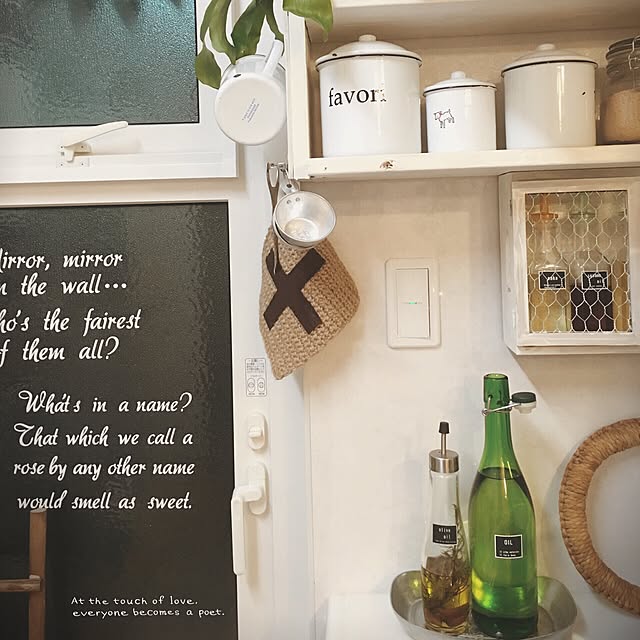 irror, mirror
n the wall...
ho's the fairest
f them all?
What's in a name?
That which we call a
rose by any other name
would smell as sweet.
At the touch of love.
everyone becomes a poet.
favori
olive
oil
OIL